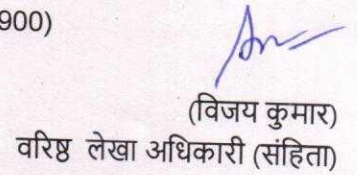 900)
(विजय कुमार)
वरिष्ठ लेखा अधिकारी (संहिता)